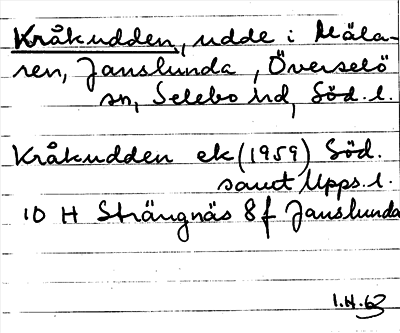 Kråkudden, udde i Mäla-
ren, Janslunda, Överselö
sn, Selebo hd, Söd. l.
Kråkudden ek (1959) Söd.
samt Upps. l.
10 H Strängnäs 8f Janslunda